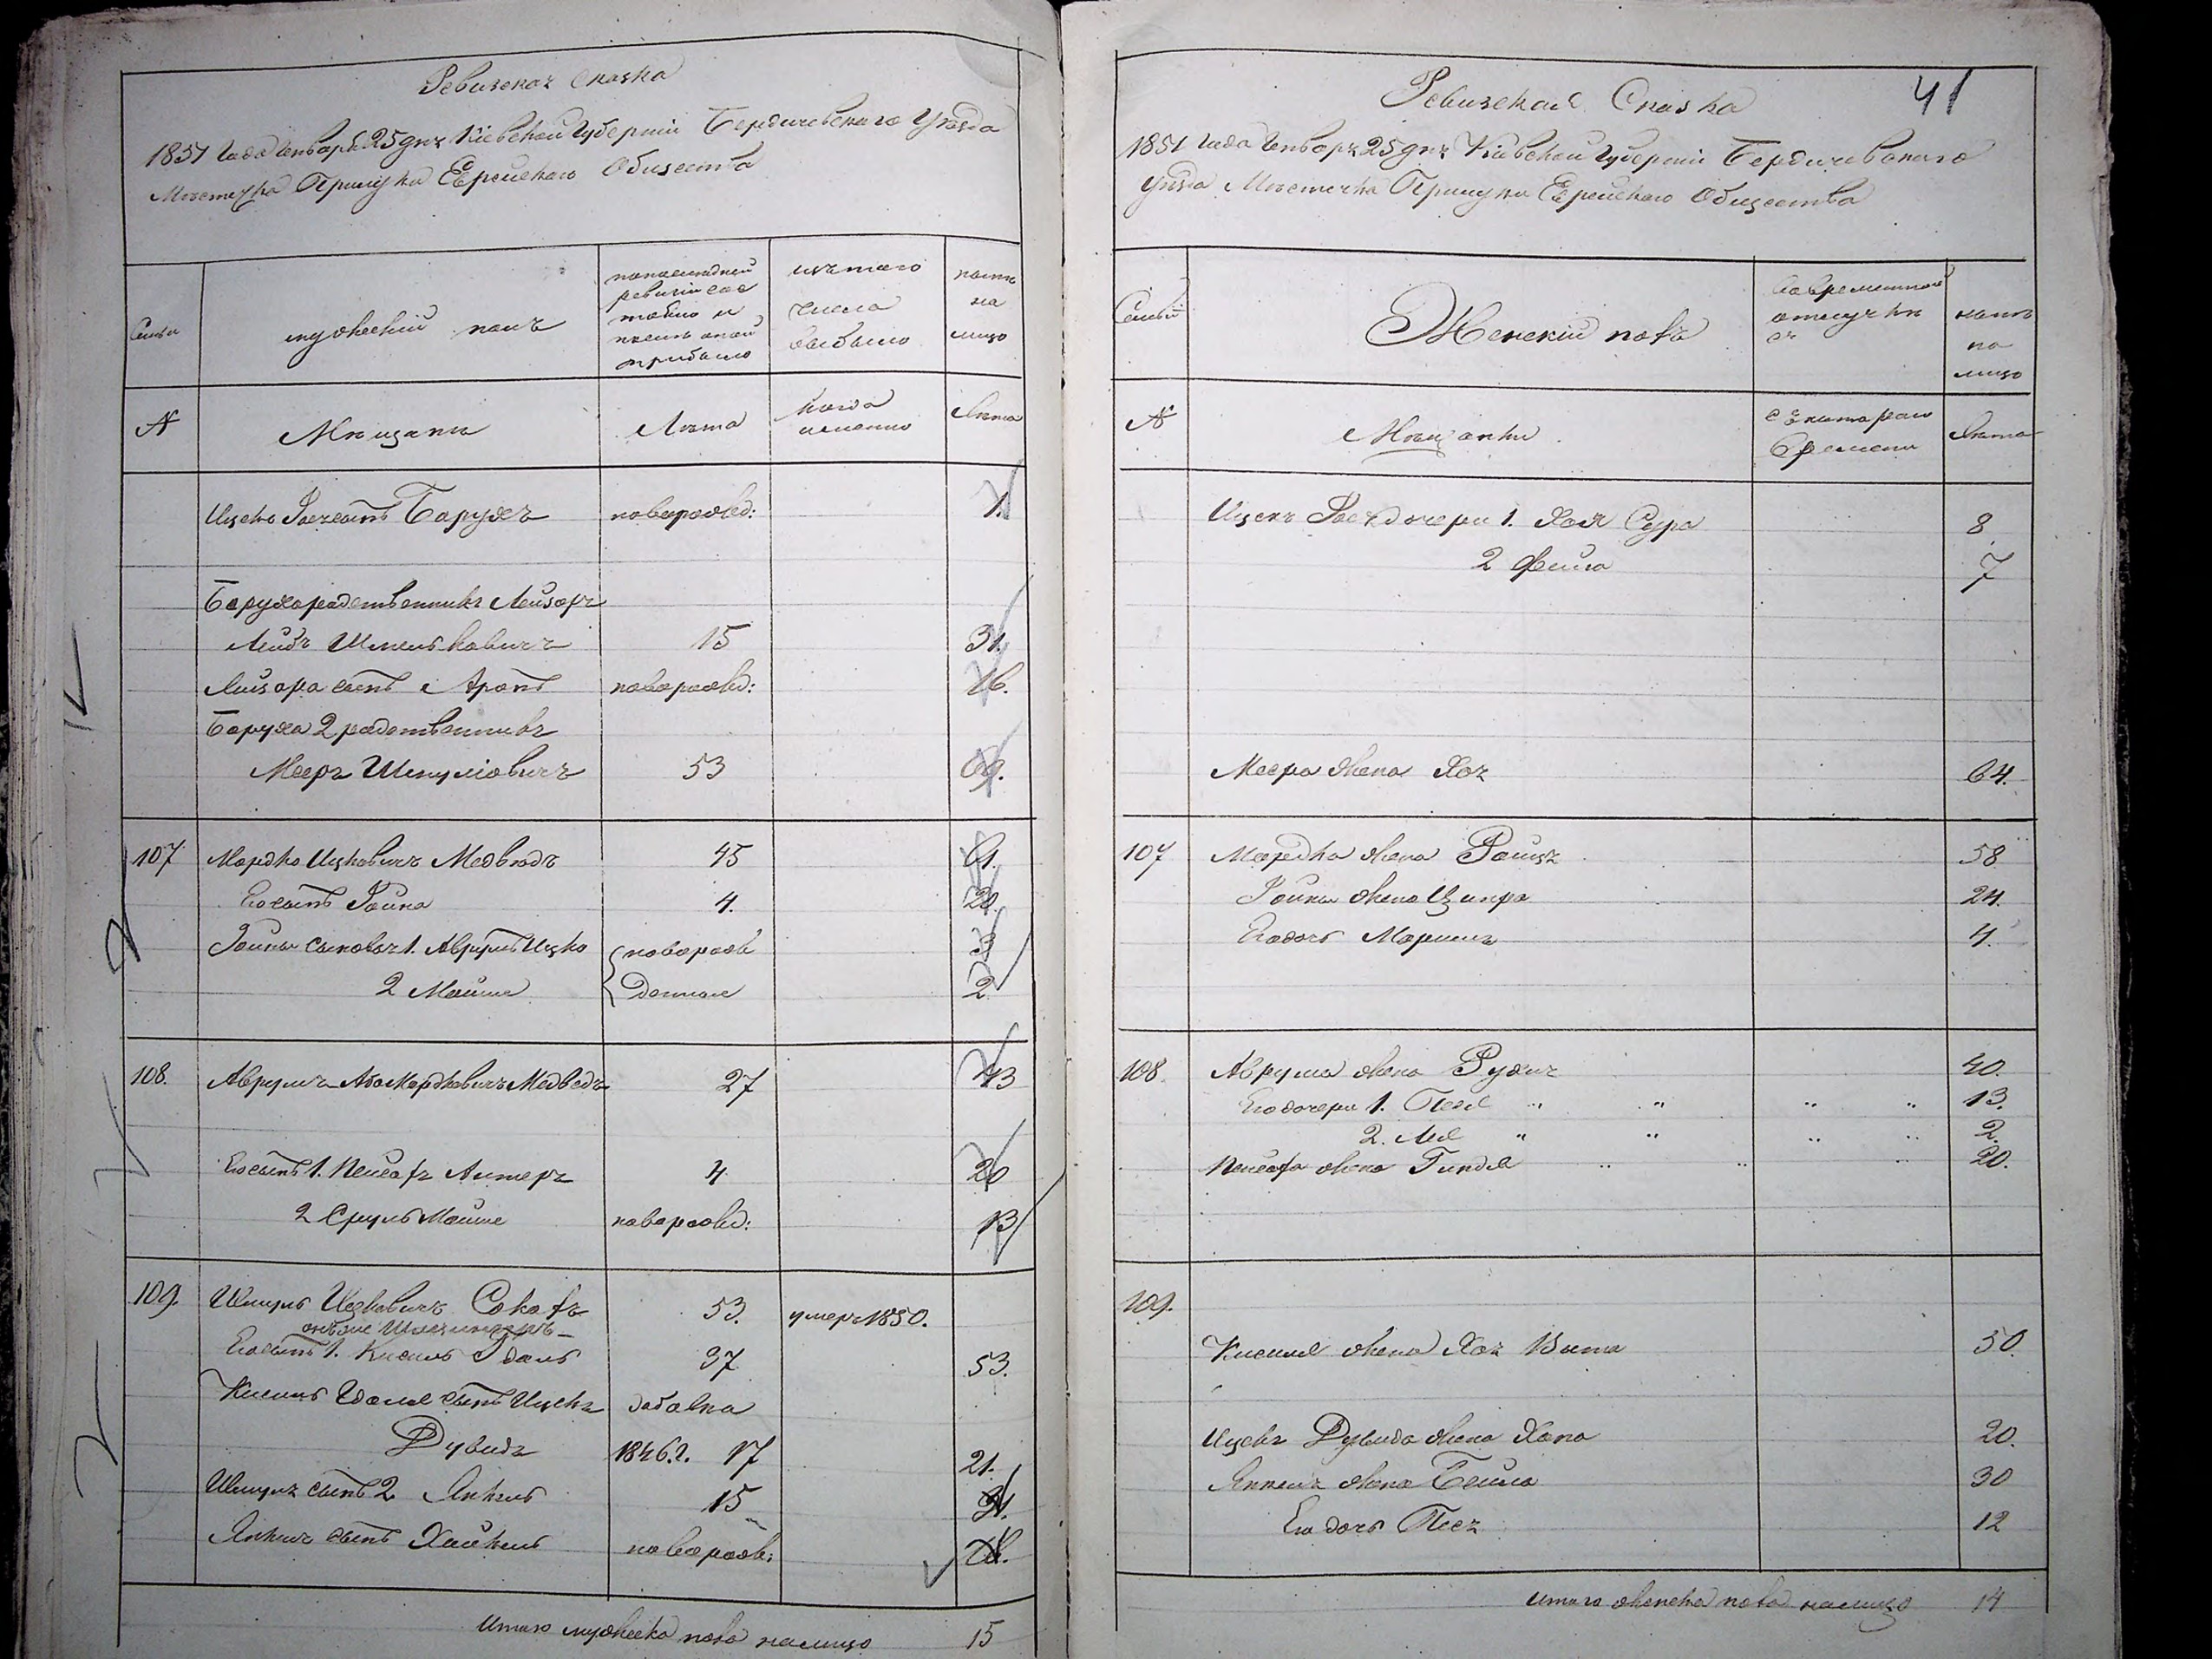 Ревизская Сказка
1851 Года Генваря 25 дня Кіевской Губерніи Бердичевскаго Уѣзда
Мѣстечка Прилуки Еврейскаго Общества
Семьи
мужескій полъ
по последней
ревизіи сос
тояло и
после оной
прибыло
изъ того
числа
выбыло
ныне
на
лицо
№
Мѣщане
Лѣта
когда
именно
Лѣта
Ицека сынъ Барухъ новорожд: 1.
Баруха родственникъ Лейзоръ
Лейбъ Шмельковичъ 15 31.
Лейзора сынъ Аронъ новорожд: 16.
Баруха 2 родственникъ
Мееръ Шмулiовичъ 53 69.
107 Мордко Ицковичъ Медведъ 45 61.
Его сынъ Іойна 4. 20.
Іойны сыновья 1. Аврумъ Ицко новорож 3
2 Мойше денные 2
108. Аврумъ Аба Мордковичъ Медведъ 27 43
Его сынъ 1. Пейсахъ Алтеръ 4 20
2 Сруль Мойше новорожд: 13
109. Шмуль Ицковичъ Соколъ 53. умеръ 1850.
онъ же
Его сынъ 1. Кисиль Идаль 37 53.
Кисиль Идаля сынъ Ицекъ добавка
Дувидъ 1846. г. 17 21.
Шмуля сынъ 2 Янкель 15 31.
Янкеля сынъ Хайкель новорож:
Итого мужеска пола налицо 15
41
Ревизская Сказка
1851 Года Генваря 25 дня Кіевской Губерніи Бердичевскаго
Уѣзда Мѣстечка Прилуки Еврейскаго Общества
Семьи
Женскій полъ
во временной
отлучки
ныне
на
лицо
№
Мѣщанки
съ котораго
Времени
Лѣта
Ицека дочери 1. Хая Сура 8
2 Фейга 7
Меера жена Хая 64.
107 Мордка жена Ройза 58
Іойны жена Ципра 24.
Его дочь 4.
108. Аврума жена Рухля 40.
Его дочери 1. Песя " " " " 13.
2. Лея " " " " 2.
Пейсаха жена Гиндля " " " 20.
109.
Кисиля жена Хая Вита 50.
Ицека Дувида жена Хана 20.
Янкеля жена Бейла 30
Его дочь Песя 12
Итого женска пола налицо 14